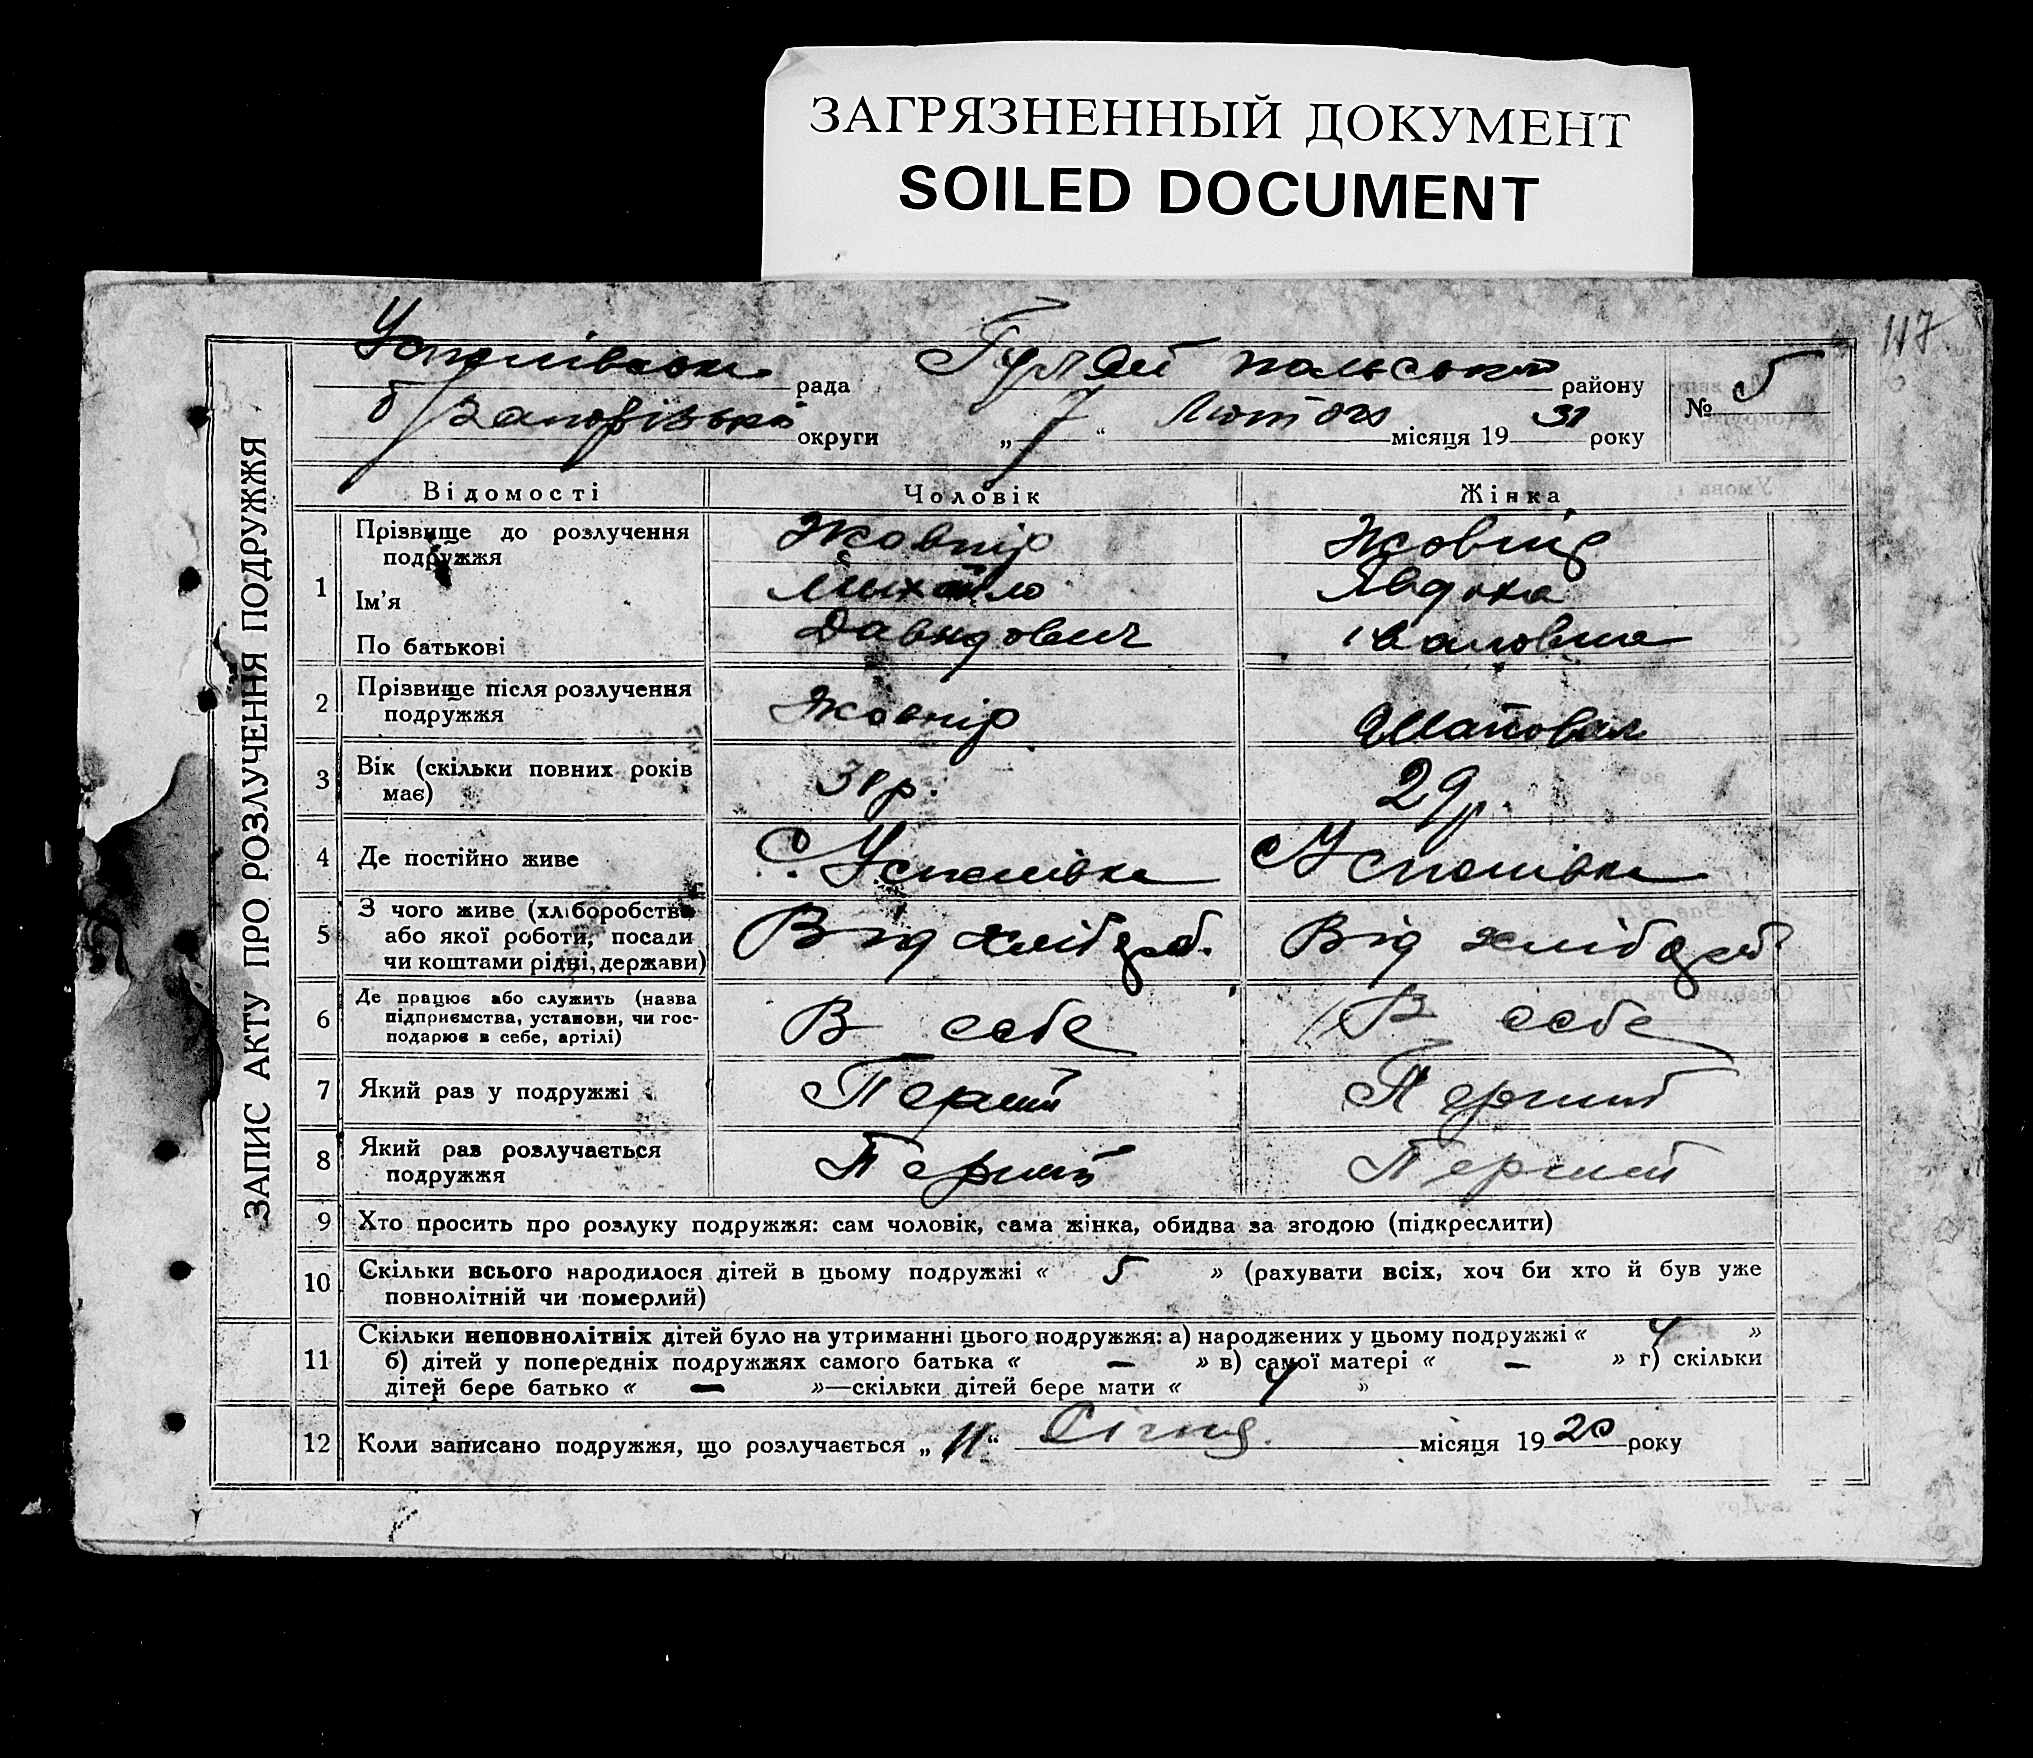 ЗАГРЯЗНЕННЫЙ ДОКУМЕНТ
SOILED DOCUMENT
117
ЗАПИС АКТУ ПРО РОЗЛУЧЕННЯ ПОДРУЖЖЯ
Успенівська рада Гуляй польський району № 5
б/Запорізької округи „ 7 “ Лютого місяця 1931 року
Відомості Чоловік Жінка
1 Прізвище до розлучення подружжя Жовнір Жовнір
Ім'я Михайло Явдоха
По батькові Давидович Івановна
2 Прізвище після розлучення подружжя Жовнір Шаповал
3 Вік (скільки повних років має) р. 29р.
4 Де постійно живе С. Успенівка С Успенівка
5 З чого живе (хліборобства або якої роботи, посади чи коштами рідні, держави) Від хлібороб. Від хлібороб
6 Де працює або служить (назва підприємства, установи, чи господарює в себе, артілі) В себе В себе
7 Який раз у подружжі Перший Перший
8 Який раз розлучається подружжя Перший Перший
9 Хто просить про розлуку подружжя: сам чоловік, сама жінка, обидва за згодою (підкреслити)
10 Скільки всього народилося дітей в цьому подружжі « 5 » (рахувати всіх, хоч би хто й був уже
повнолітній чи померлий)
11 Скільки неповнолітніх дітей було на утриманні цього подружжя: а) народжених у цьому подружжі « 4 »
б) дітей у попередніх подружжях самого батька « — » в) самої матері « — » г) скільки
дітей бере батько « — »—скільки дітей бере мати « 4 »
12 Коли записано подружжя, що розлучається „ 11 “ Січня місяця 1920 року